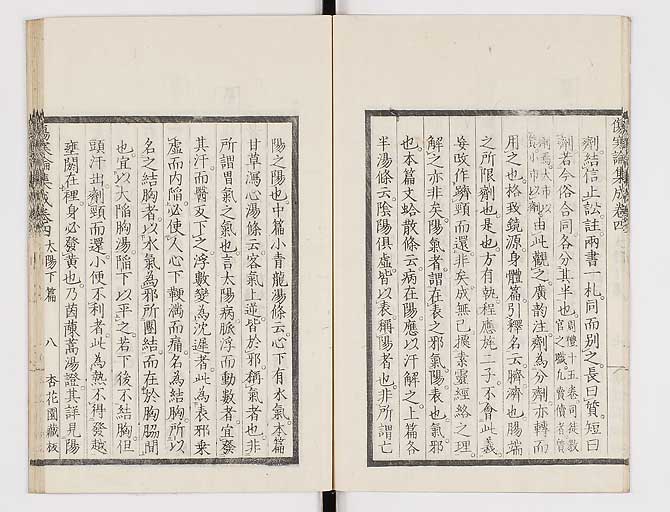 劑結信止訟註兩書一札同而別之長曰質短曰
劑若今俗合同各分其半也
由此觀之廣韵注劑為分劑亦轉而
用之也格致鏡源身體篇引釋名云臍濟也腸端
之所限劑也是也方有執程應旄二子不會此義
妄改作臍頸而還非矣成無己援素靈經絡之理
解之亦非矣陽氣者謂在表之邪氣陽表也氣邪
也本篇文蛤散條云病在陽應以汗解之上篇各
半湯條云陰陽俱虛皆以表稱陽者也非所謂亡
陽之陽也中篇小青龍湯條云心下有水氣本篇
甘草瀉心湯條云客氣上逆皆於邪稱氣者也非
所謂胃氣之氣也言太陽病脈浮而動數者宜發
其汗而醫反下之浮數變為沈遲者此為表邪乘
虛而内陷必使人心下鞕滿而痛名為結胸所以
名之結胸者以水氣為邪所團結而在於胸脇間
也宜以大陷胸湯陷下以平之若下後不結胸但
頭汗出劑頸而還小便不利者此為熱不得發越
壅閼在裡身必發黃也乃茵蔯蒿湯證其詳見陽
傷寒論集成卷四 太陽下篇 八 杏花園藏板